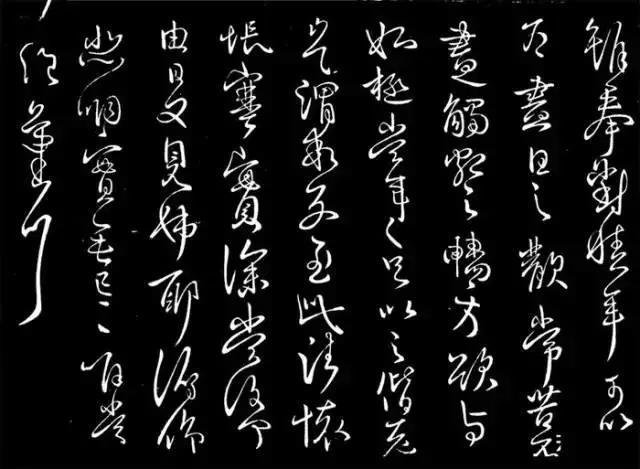 雖奉對積年可以
為盡日之歡常苦不
盡觸類之暢方欲與
姊極當年之匹以之偕老
豈謂乖別至此諸懷
悵塞實深當復何
由日夕見姊耶俯仰
悲咽實無已已惟當
絕氣耳